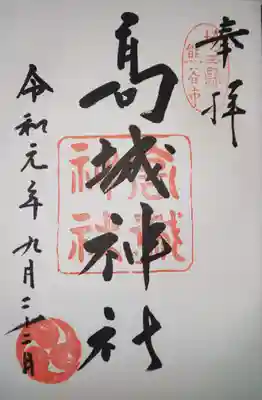 奉拝
埼玉県
熊谷市
高城神社
高城
神社
令和元年九月二十二日